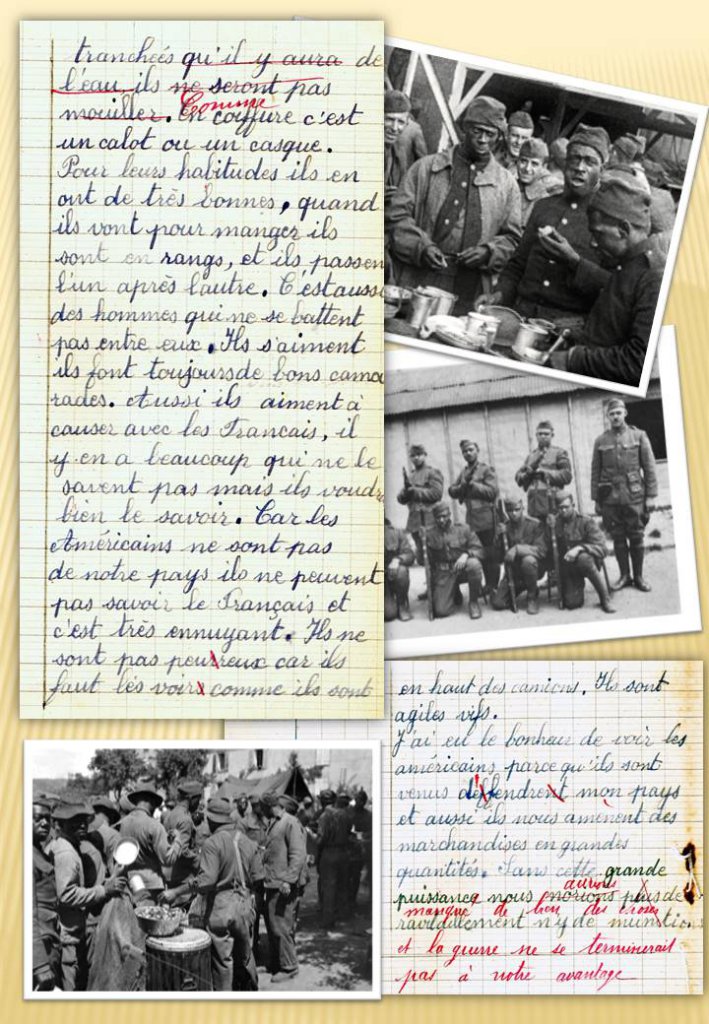 tranchées qu'il y aura de
l'eau, ils ne seront pas
mouiller. Comme En coiffure c'est
un calot ou un casque.
Pour leurs habitudes ils en
ont de très bonnes, quand
ils vont pour manger ils
sont en rangs, et ils passen
l'un après l'autre. C'est aussi
des hommes qui ne se battent
pas entre eux. Ils s'aiment
ils font toujours de bons cama
rades. Aussi ils aiment à
causer avec les Francais, il
y en a beaucoup qui ne le
savent pas mais ils voudr
bien le savoir. Car les
Américains ne sont pas
de notre pays ils ne peuvent
pas savoir le Français et
c'est très ennuyant. Ils ne
sont pas peureux car ils
faut les voir comme ils sont
en haut des camions. Ils sont
agiles vifs.
J'ai eu le bonheur de voir les
américains parce qu'ils sont
venus défendre mon pays
et aussi ils nous amènent des
marchandises en grandes
quantités. Sans cette grande
puissance nous aurions
manqué de bien des choses
ravitaillement n'y de munitions
et la guerre ne se terminerait
pas à notre avantage